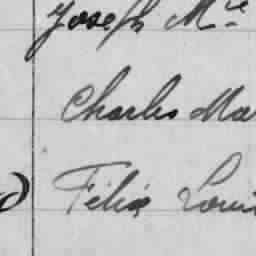 Joseph Mie
Charles Ma
Félix Loui